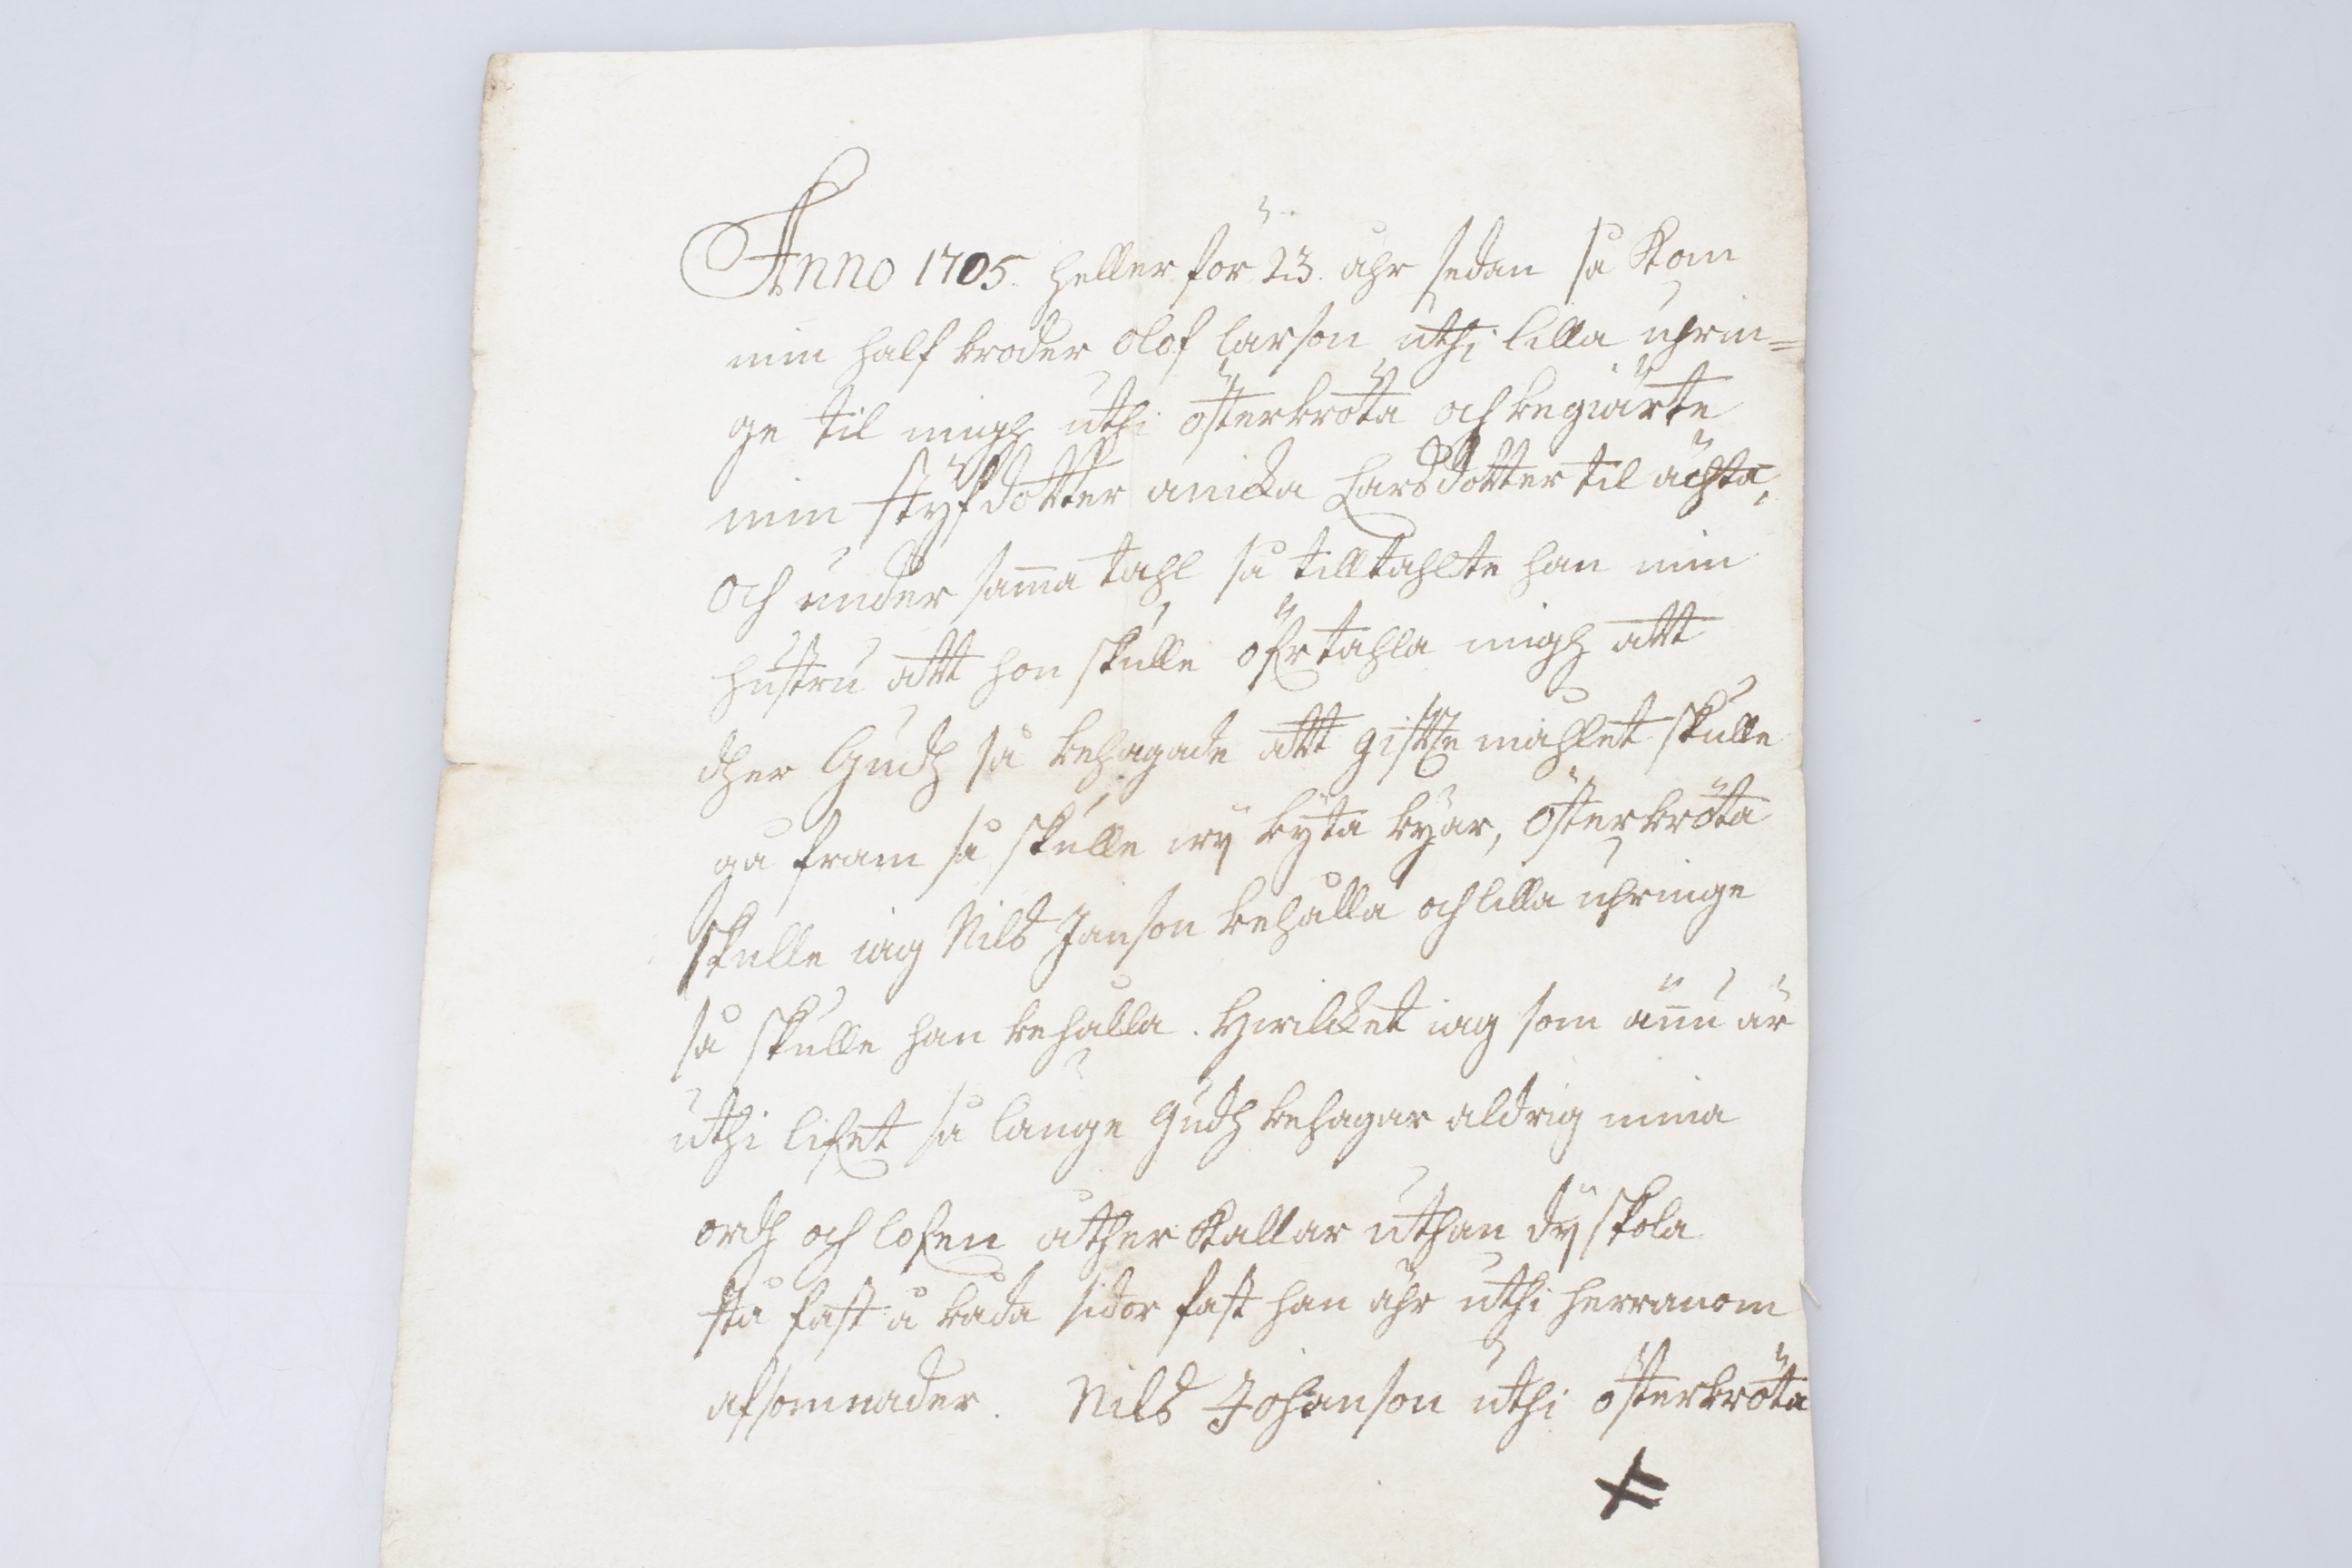 Anno 1705. heller för 23. åhr sedan så Kom
min half broder Olof larson uthi lilla uhrin=
ge til migh uthi österbröta och begiärte
min styfdotter anicka Larsdotter til ächta,
och under sama tahl så tilltahlte han min
hustru att hon skulle öfwertahla migh att
dher Gudh så behagade att gifftermåhlet skulle
gå fram så skulle wÿ bÿta bÿar, Österbröta
skulle iag Nils Janson behålla och lilla uhringe
så skulle han behålla. Hwilcket iag som änu är
uthi lifwet så länge Gudh behagar aldrig mina
ordh och lofwen åther kallar uthan dÿ skola
stå fast å båda sidor fast han ähr uthi herranom
afsomnader. Nils Johanson uthi österbröta